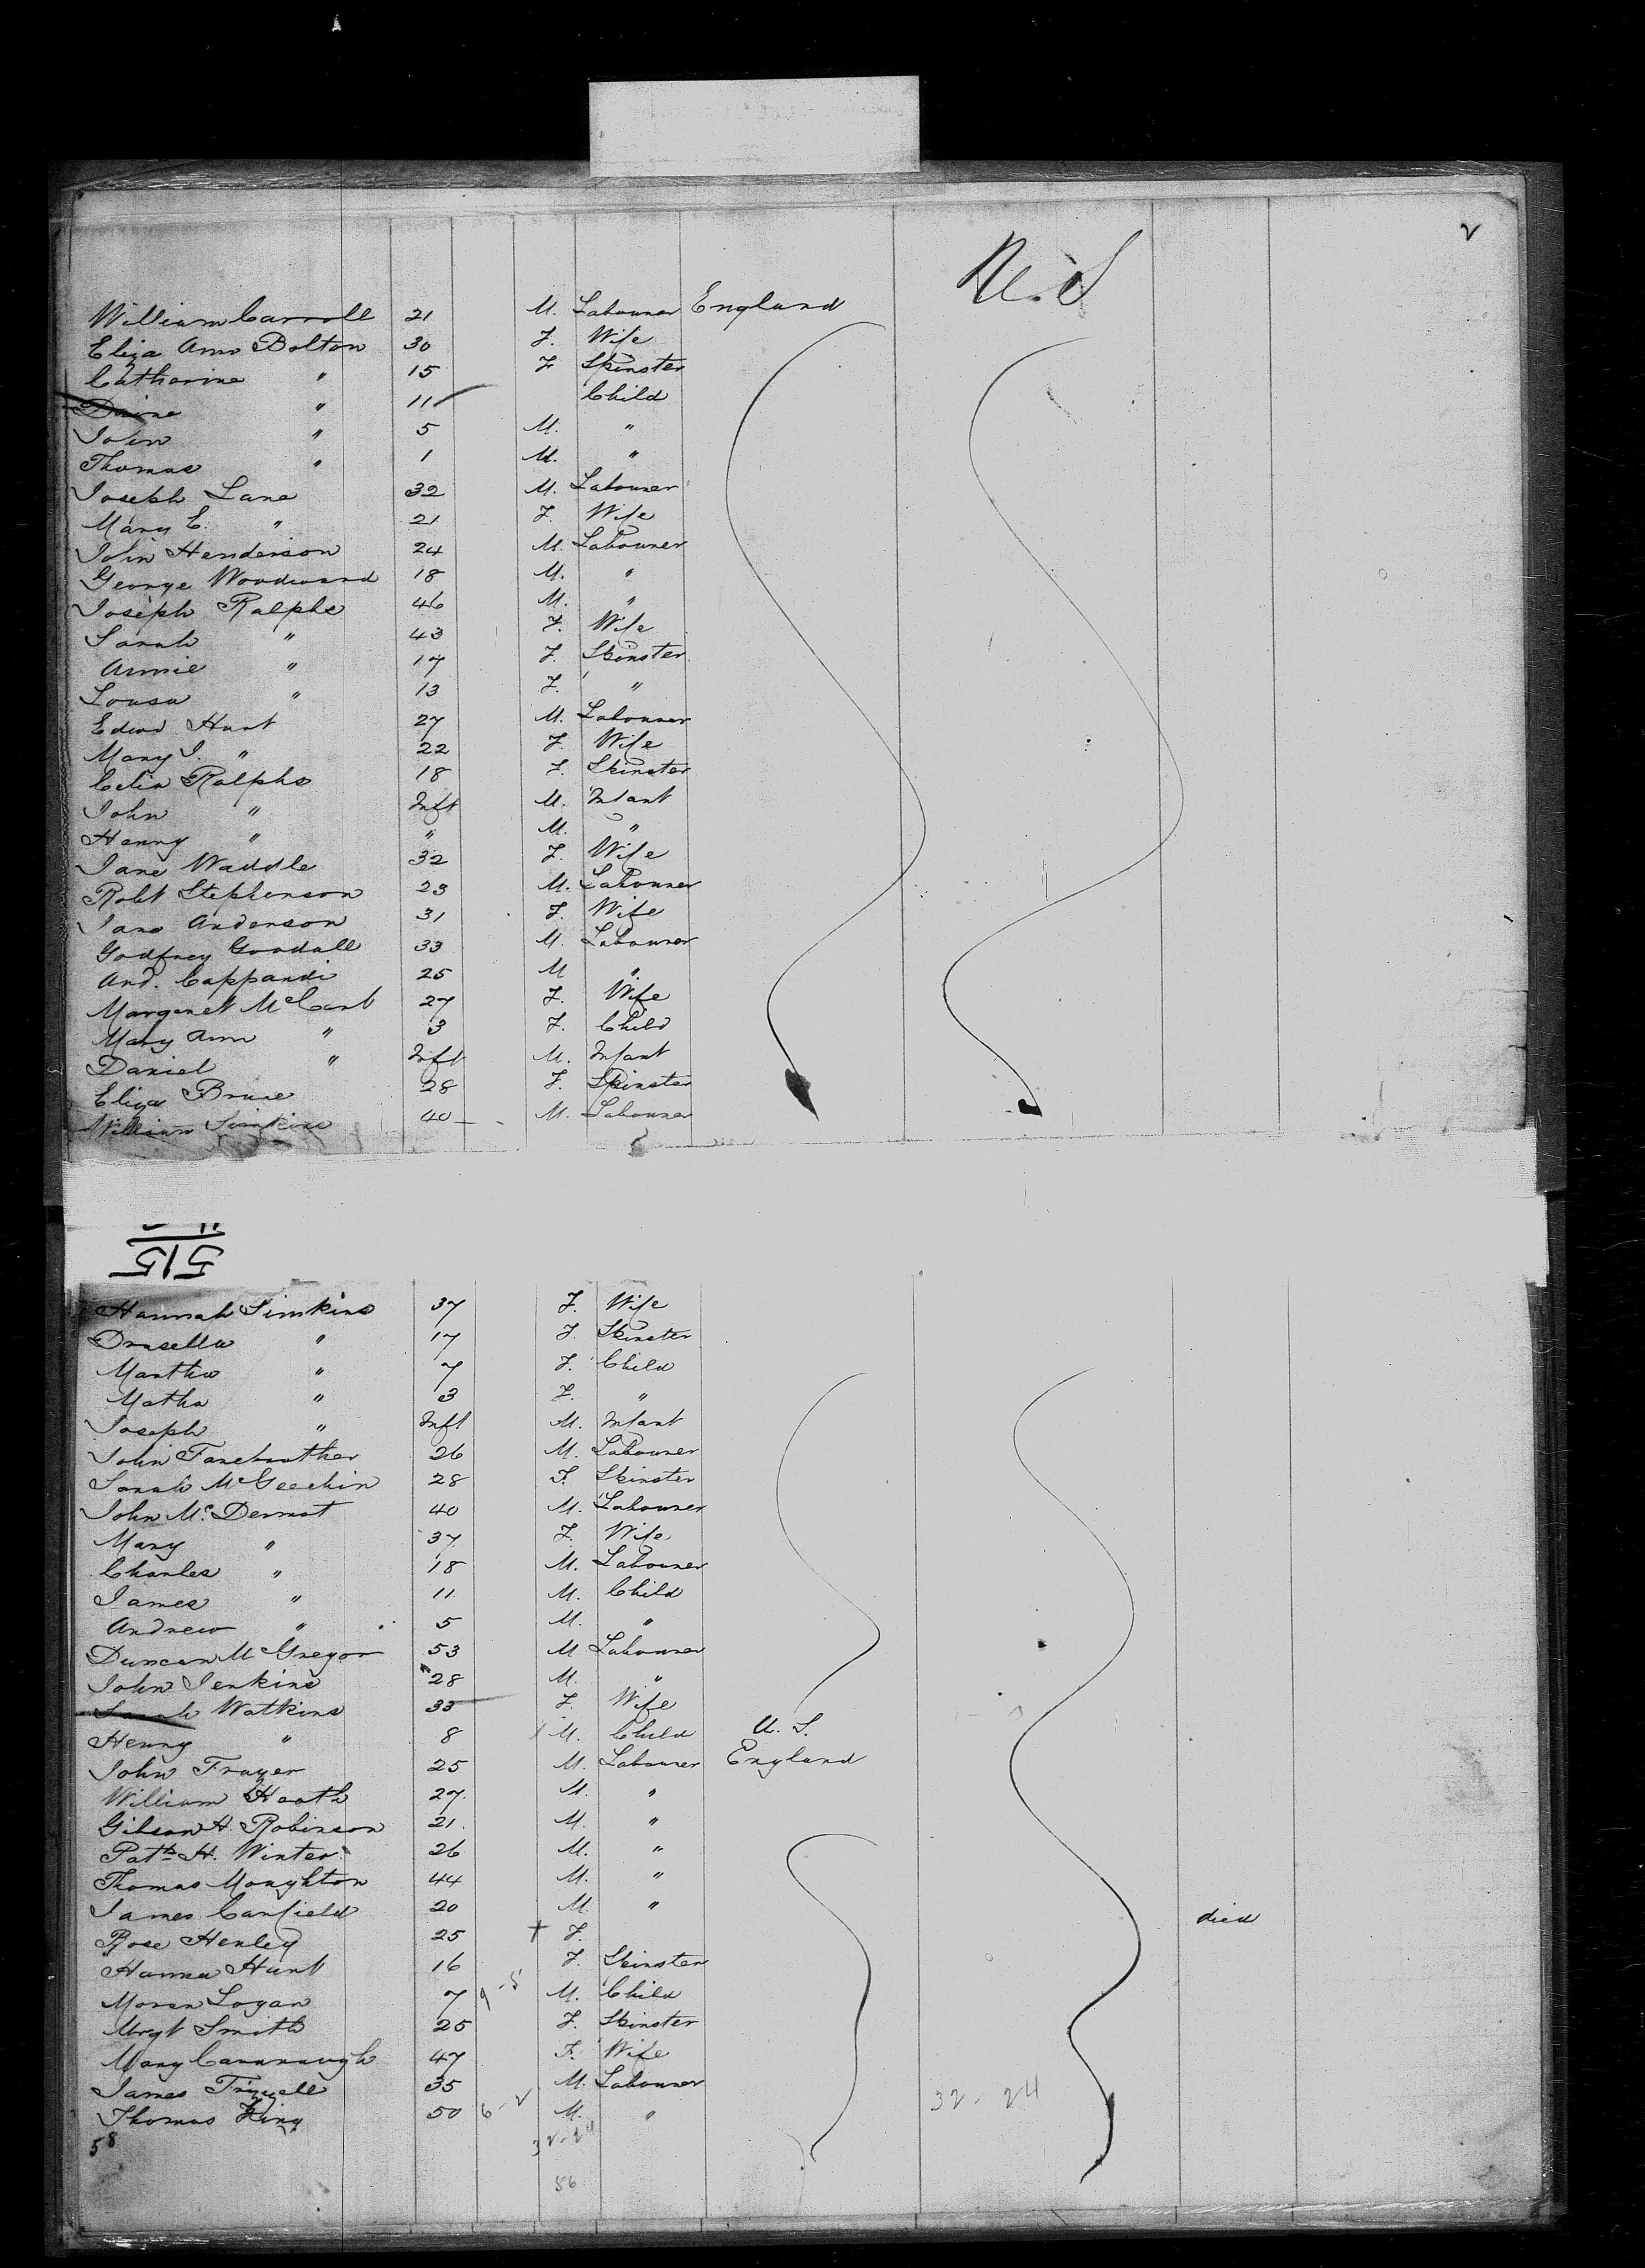 2
U.S
William Carroll 21 M. Labourer England
Eliza Ann Bolton 30 F. Wife
Catherine " 15 F Spinster
" 11 Child
John " 5 M. "
Thomas " 1 M. "
Joseph Lane 32 M. Labourer
Mary E. " 21 F. Wife
John Henderson 24 M. Labourer
George Woodward 18 M. "
Joseph Ralphs 46 M. "
Sarah " 43 F. Wife
Annie " 17 F. Spinster
Lousa " 13 F. "
Edwd Hunt 27 M. Labourer
Mary J. " 22 F. Wife
Celia Ralphs 18 F. Spinster
John " Inft M. Infant
Henry " " M. "
Jane Waddle 32 F. Wife
Robt Stephenson 23 M. Labourer
Jane Anderson 31 F. Wife
Godfrey Goodall 33 M. Labourer
And. Cappandi 25 M "
Margaret McCart 27 F. Wife
Mary Ann " 3 F. Child
Daniel " Inft M. Infant
Eliza Bruce 28 F. Spinster
William Simkins 40 M. Labourer
515
Hannah Simkins 37 F. Wife
Drusella " 17 F. Spinster
Martha " 7 F. Child
Matha " 3 F. "
Joseph " Inft M. Infant
John 26 M. Labourer
Sarah McGeechin 28 F. Spinster
John Mc.Dermot 40 M. Labourer
Mary " 37 F. Wife
Charles " 18 M. Labourer
James " 11 M. Child
Andrew " 5 M. "
Duncan McGregor 53 M Labourer
John Jenkins 28 M. "
Sarah Watkins 33 F. Wife
Henry " 8 M. Child U.S.
John Frayer 25 M. Labourer England
William Heath 27 M. "
Gibson H. Robinson 21 M. "
Patk H. Winter 26 M. "
Thomas Moughton 44 M. "
James Canfield 20 M. "
Rose Henley 25 + F. died
Hanna Hunt 16 F. Spinster
Moran Logan 7 9-5 M. Child
Mrgt Smith 25 F. Spinster
Mary Cavanaugh 47 F. Wife
James 35 M. Labourer
Thomas King 50 6-2 M. "
32-24
58 32-24
56